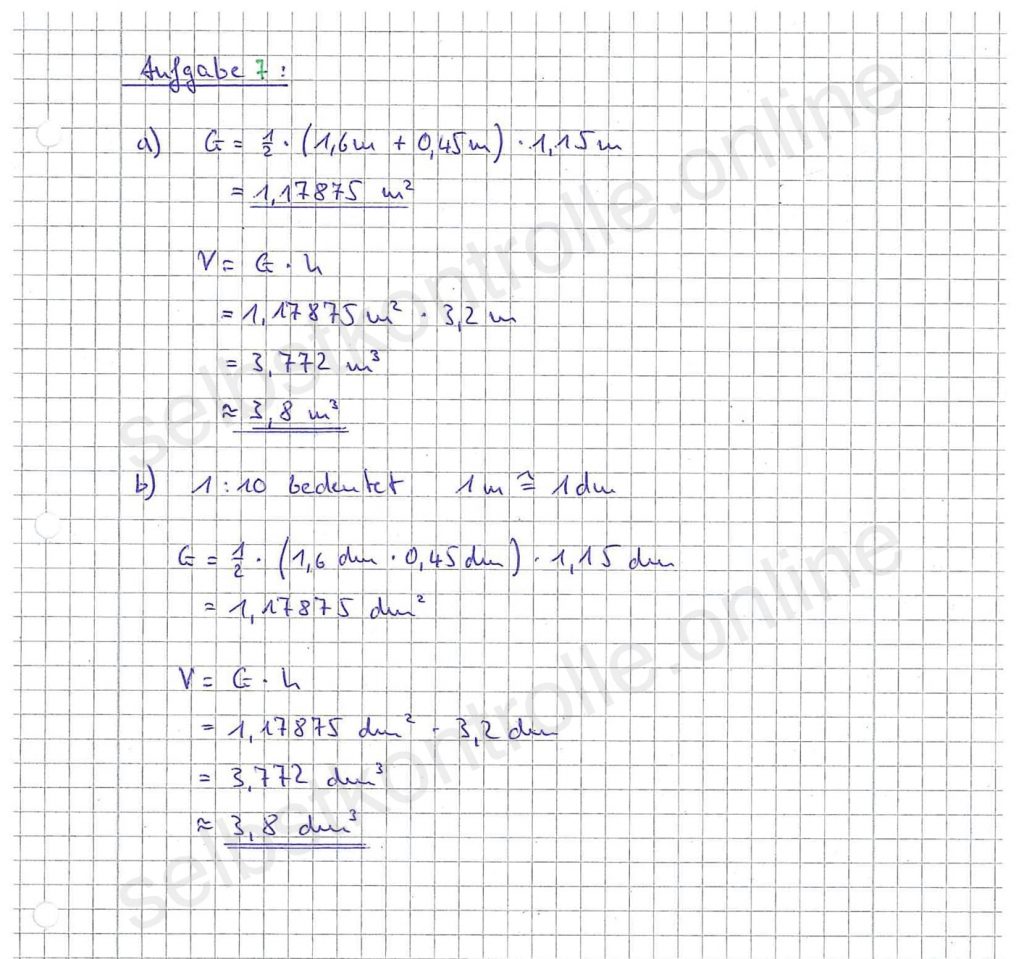 Aufgabe 7:
a) G = 1/2 · (1,6m + 0,45m) · 1,15m
= 1,17875 m²
V = G · h
= 1,17875 m² · 3,2 m
= 3,772 m³
≈ 3,8 m³
b) 1 : 10 bedeutet 1m ≙ 1dm
G = 1/2 · (1,6 dm · 0,45 dm) · 1,15 dm
= 1,17875 dm²
V = G · h
= 1,17875 dm² · 3,2 dm
= 3,772 dm³
≈ 3,8 dm³
selbstkontrolle.online
selbstkontrolle.online